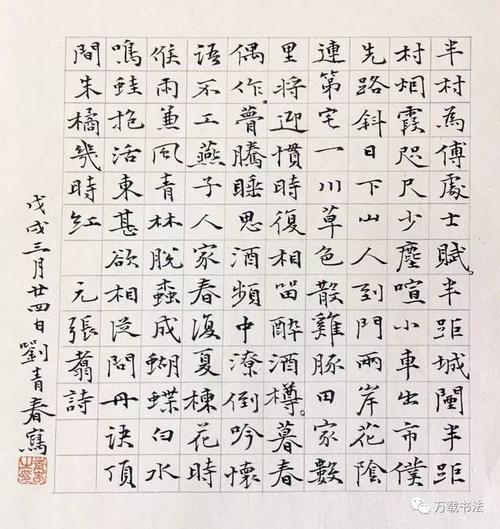 半村為傅處士賦。半距城闉半距
村烟霞咫尺少塵喧小車出市僕
先路斜日下山人到門兩岸花陰
連第宅一川草色散雞豚田家數
里將迎慣時復相留醉酒樽。暮春
偶作。瞢騰睡思酒頻中潦倒吟懷
语不工燕子人家春復夏楝花時
候雨兼風青林脫成蝴蝶白水
鳴蛙抱活東甚欲相從問丹诀頂
間朱橘幾時紅 元張翥詩
戊戌三月廿四日劉青春寫
万载书法